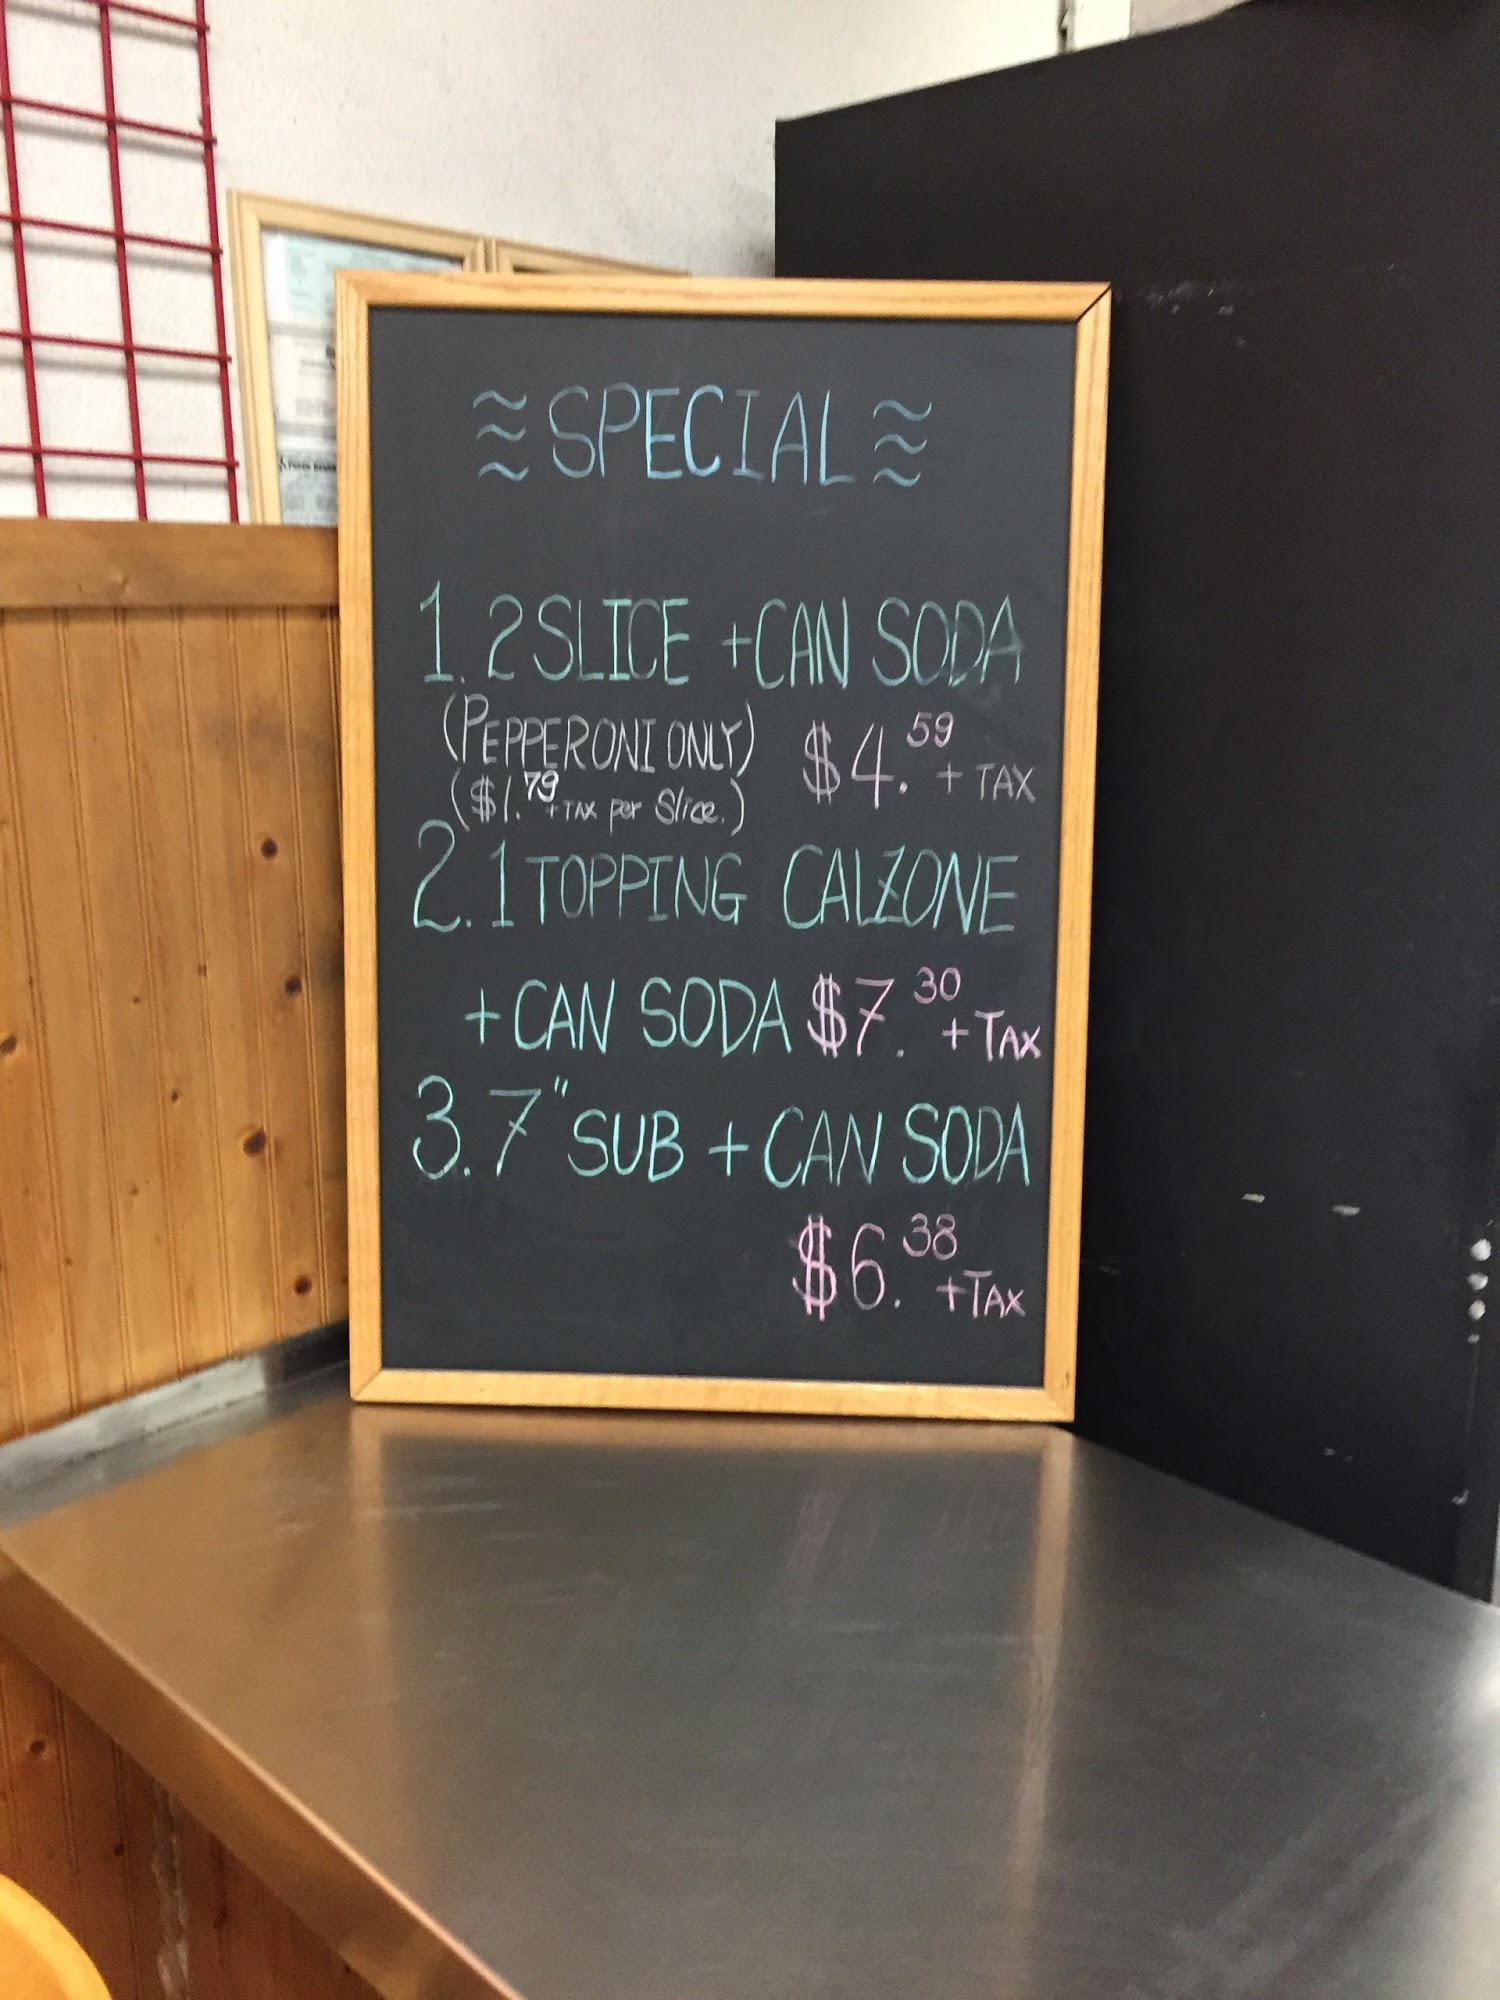 ≈ SPECIAL ≈
1. 2 SLICE + CAN SODA
(PEPPERONI ONLY) $4.59 + TAX
($1.79 + TAX per Slice.)
2. 1 TOPPING CALZONE
+ CAN SODA $7.30 + TAX
3. 7" SUB + CAN SODA
$6.38 + TAX